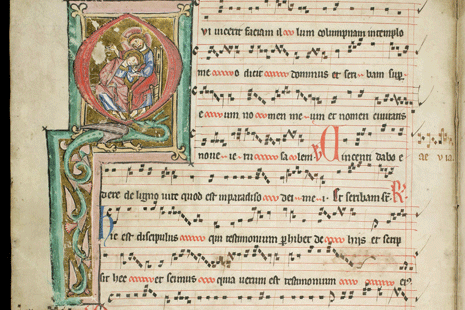 vi vicerit faciam il lum columpnam in templo
me o dicit dominus et scri bam sup
e um no men me um et nomen civitatis
noue ie ru sa lem V incenti dabo e
ae via
dere de ligno vite quod est in paradiso dei me i Et scribam R
hic est discipulus qui testimonium perhibet de his et scrip
sit hec et scimus quia verum est testimonium ei